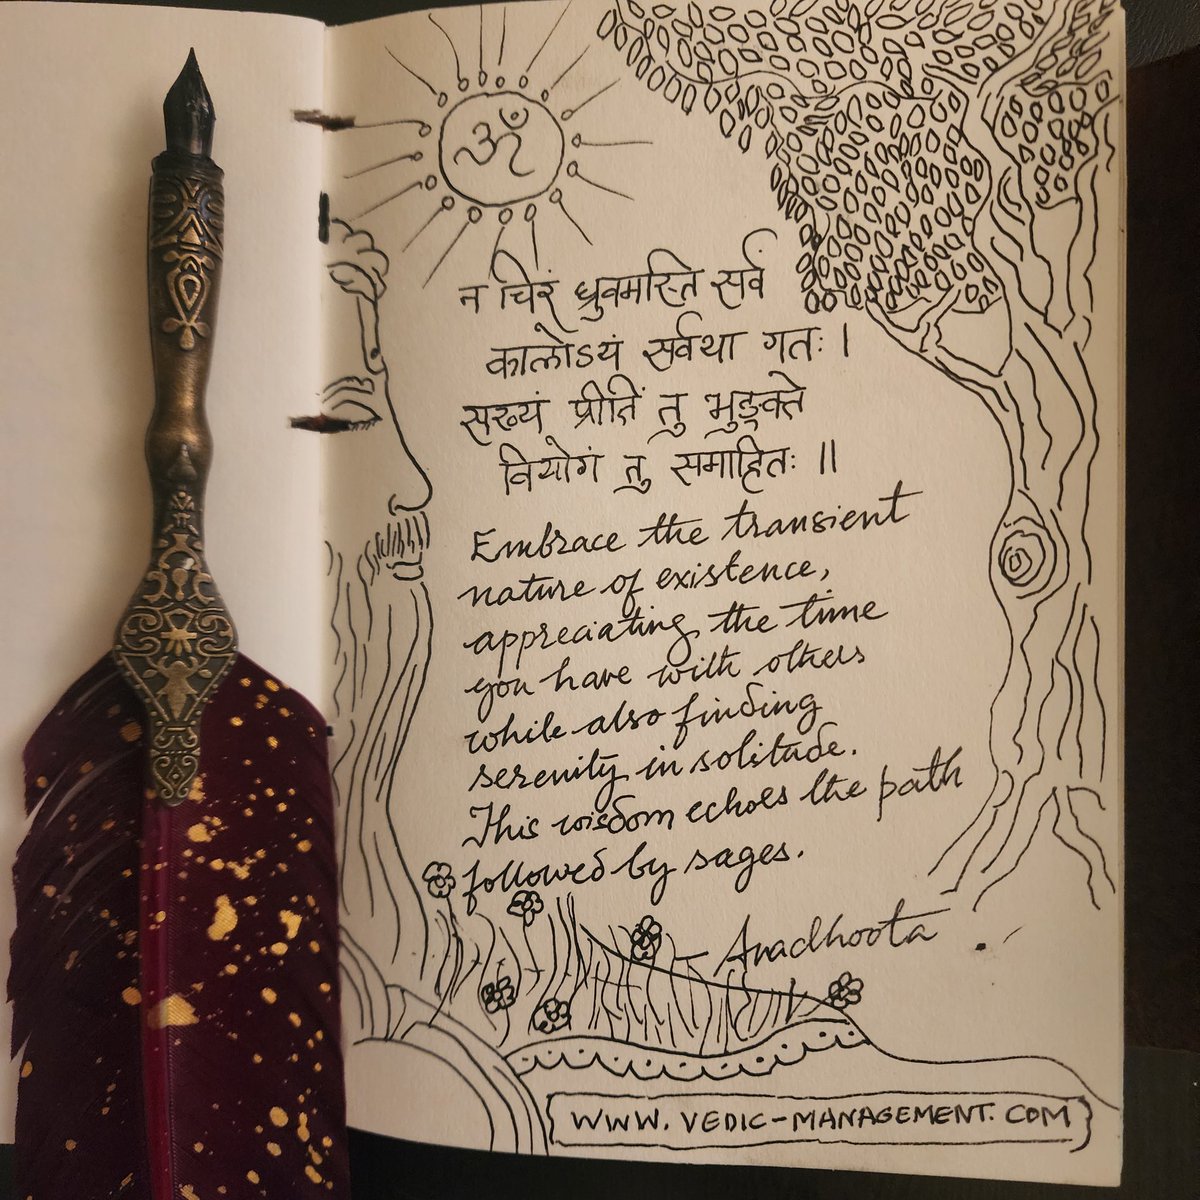 ॐ
न चिरं ध्रुवमस्ति सर्वं
कालोऽयं सर्वथा गतः ।
सख्यं प्रीतिं तु भुङ्क्ते
वियोगं तु समाहितः ॥
Embrace the transient
nature of existence,
appreciating the time
you have with others
while also finding
serenity in solitude.
This wisdom echoes the path
followed by sages.
- Avadhoota
WWW. VEDIC-MANAGEMENT. COM